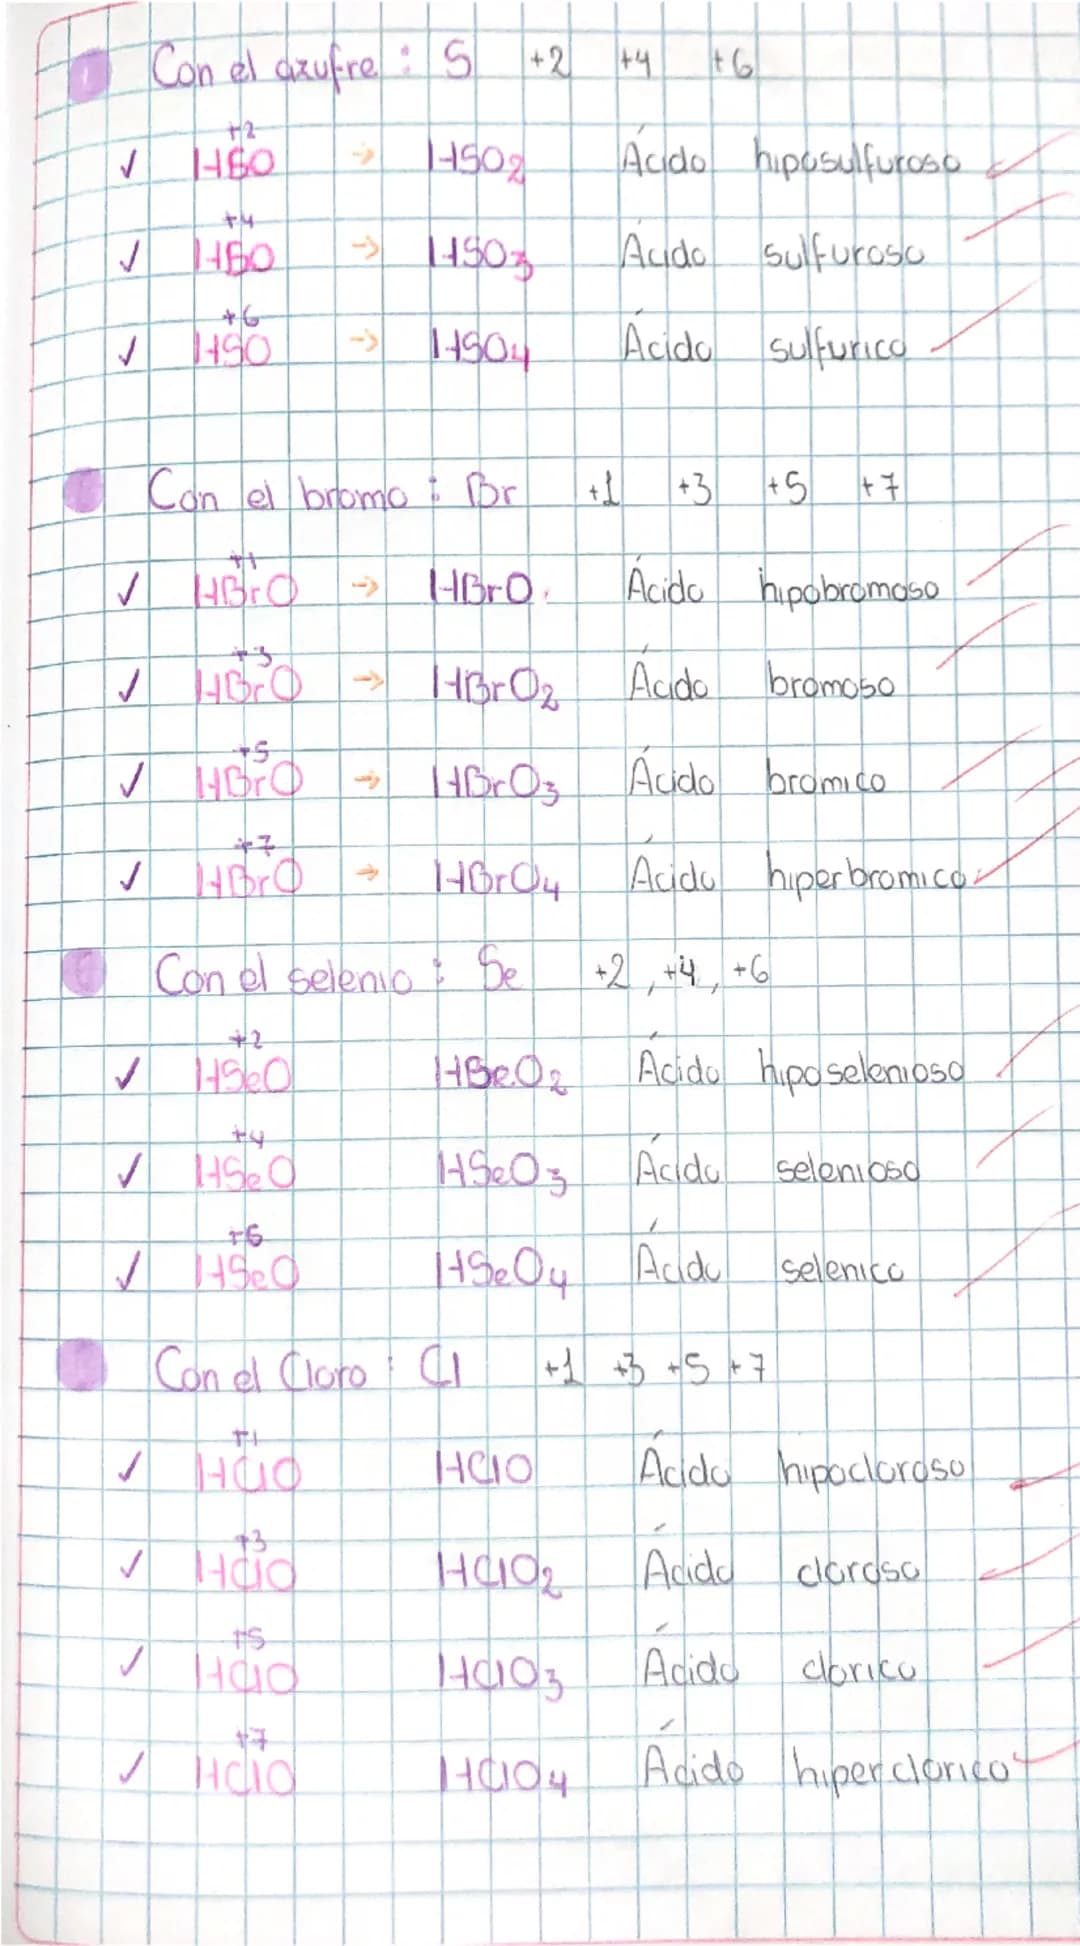 Con el azufre : S +2 +4 +6
✓ HSO +2 → HSO2 Ácido hiposulfuroso
✓ HSO +4 → HSO3 Ácido sulfuroso
✓ HSO +6 → HSO4 Ácido sulfurico
Con el bromo : Br +1 +3 +5 +7
✓ HBrO +1 → HBrO. Ácido hipobromoso
✓ HBrO +3 → HBrO2 Ácido bromoso
✓ HBrO +5 → HBrO3 Ácido bromico
✓ HBrO +7 → HBrO4 Ácido hiperbromico
Con el selenio : Se +2, +4, +6
✓ HSeO +2 HSeO2 Ácido hiposelenioso
✓ HSeO +4 HSeO3 Ácido selenioso
✓ HSeO +6 HSeO4 Ácido selenico
Con el Cloro : Cl +1 +3 +5 +7
✓ HClO +1 HClO Ácido hipocloroso
✓ HClO +3 HClO2 Ácido cloroso
✓ HClO +5 HClO3 Ácido clorico
✓ HClO +7 HClO4 Ácido hiperclorico